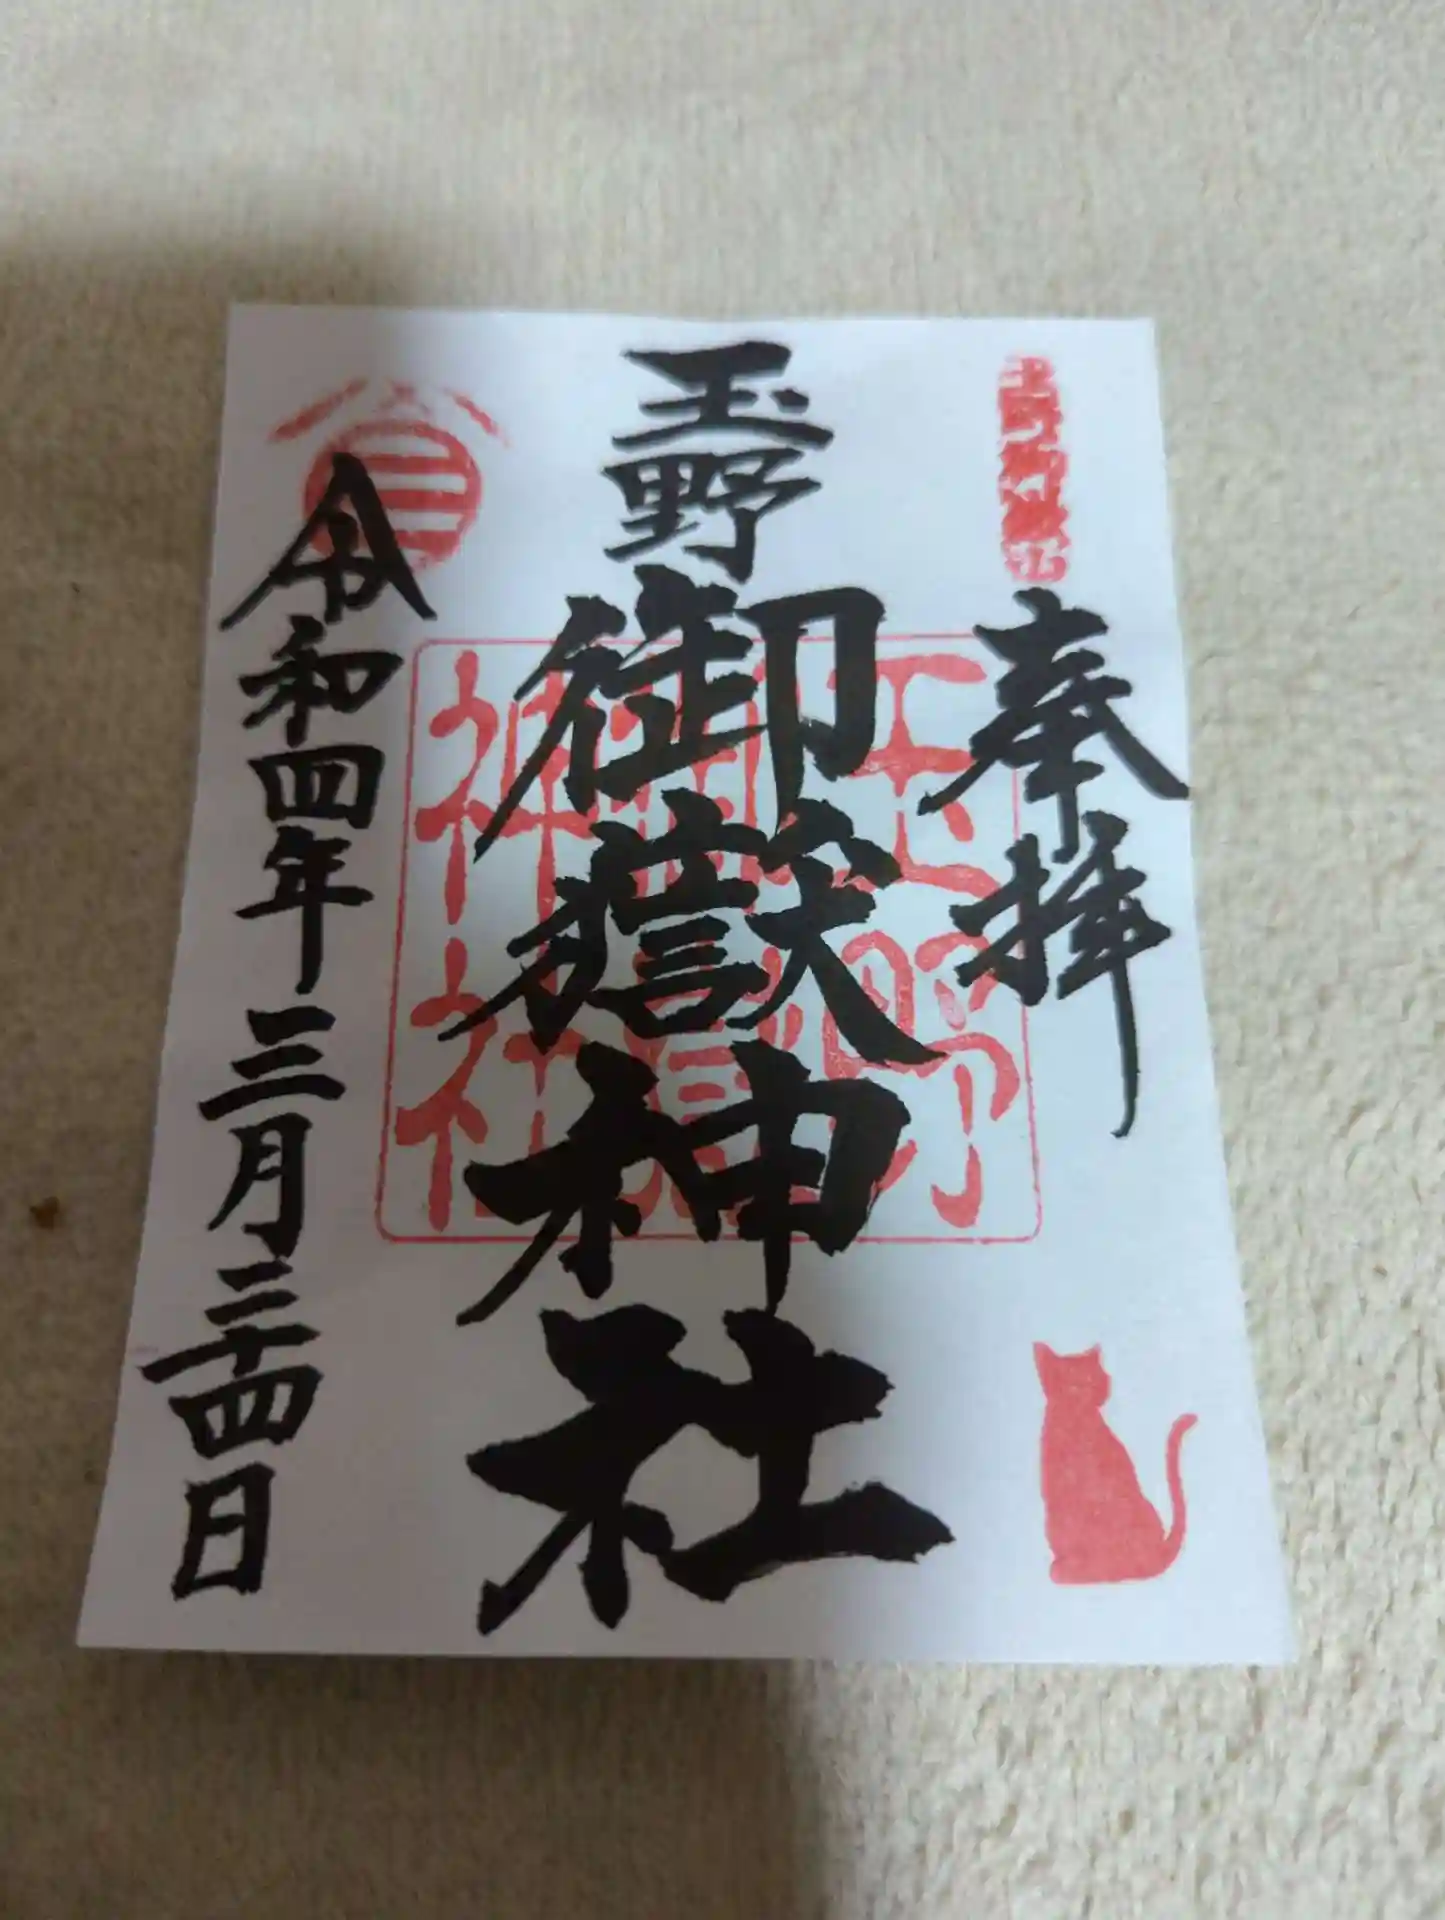 奉拝
玉野
御嶽神社
玉野
御嶽
神社
令和四年三月二十四日